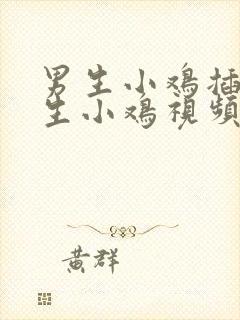 男生小鸡插
生小鸡視頻
黄群